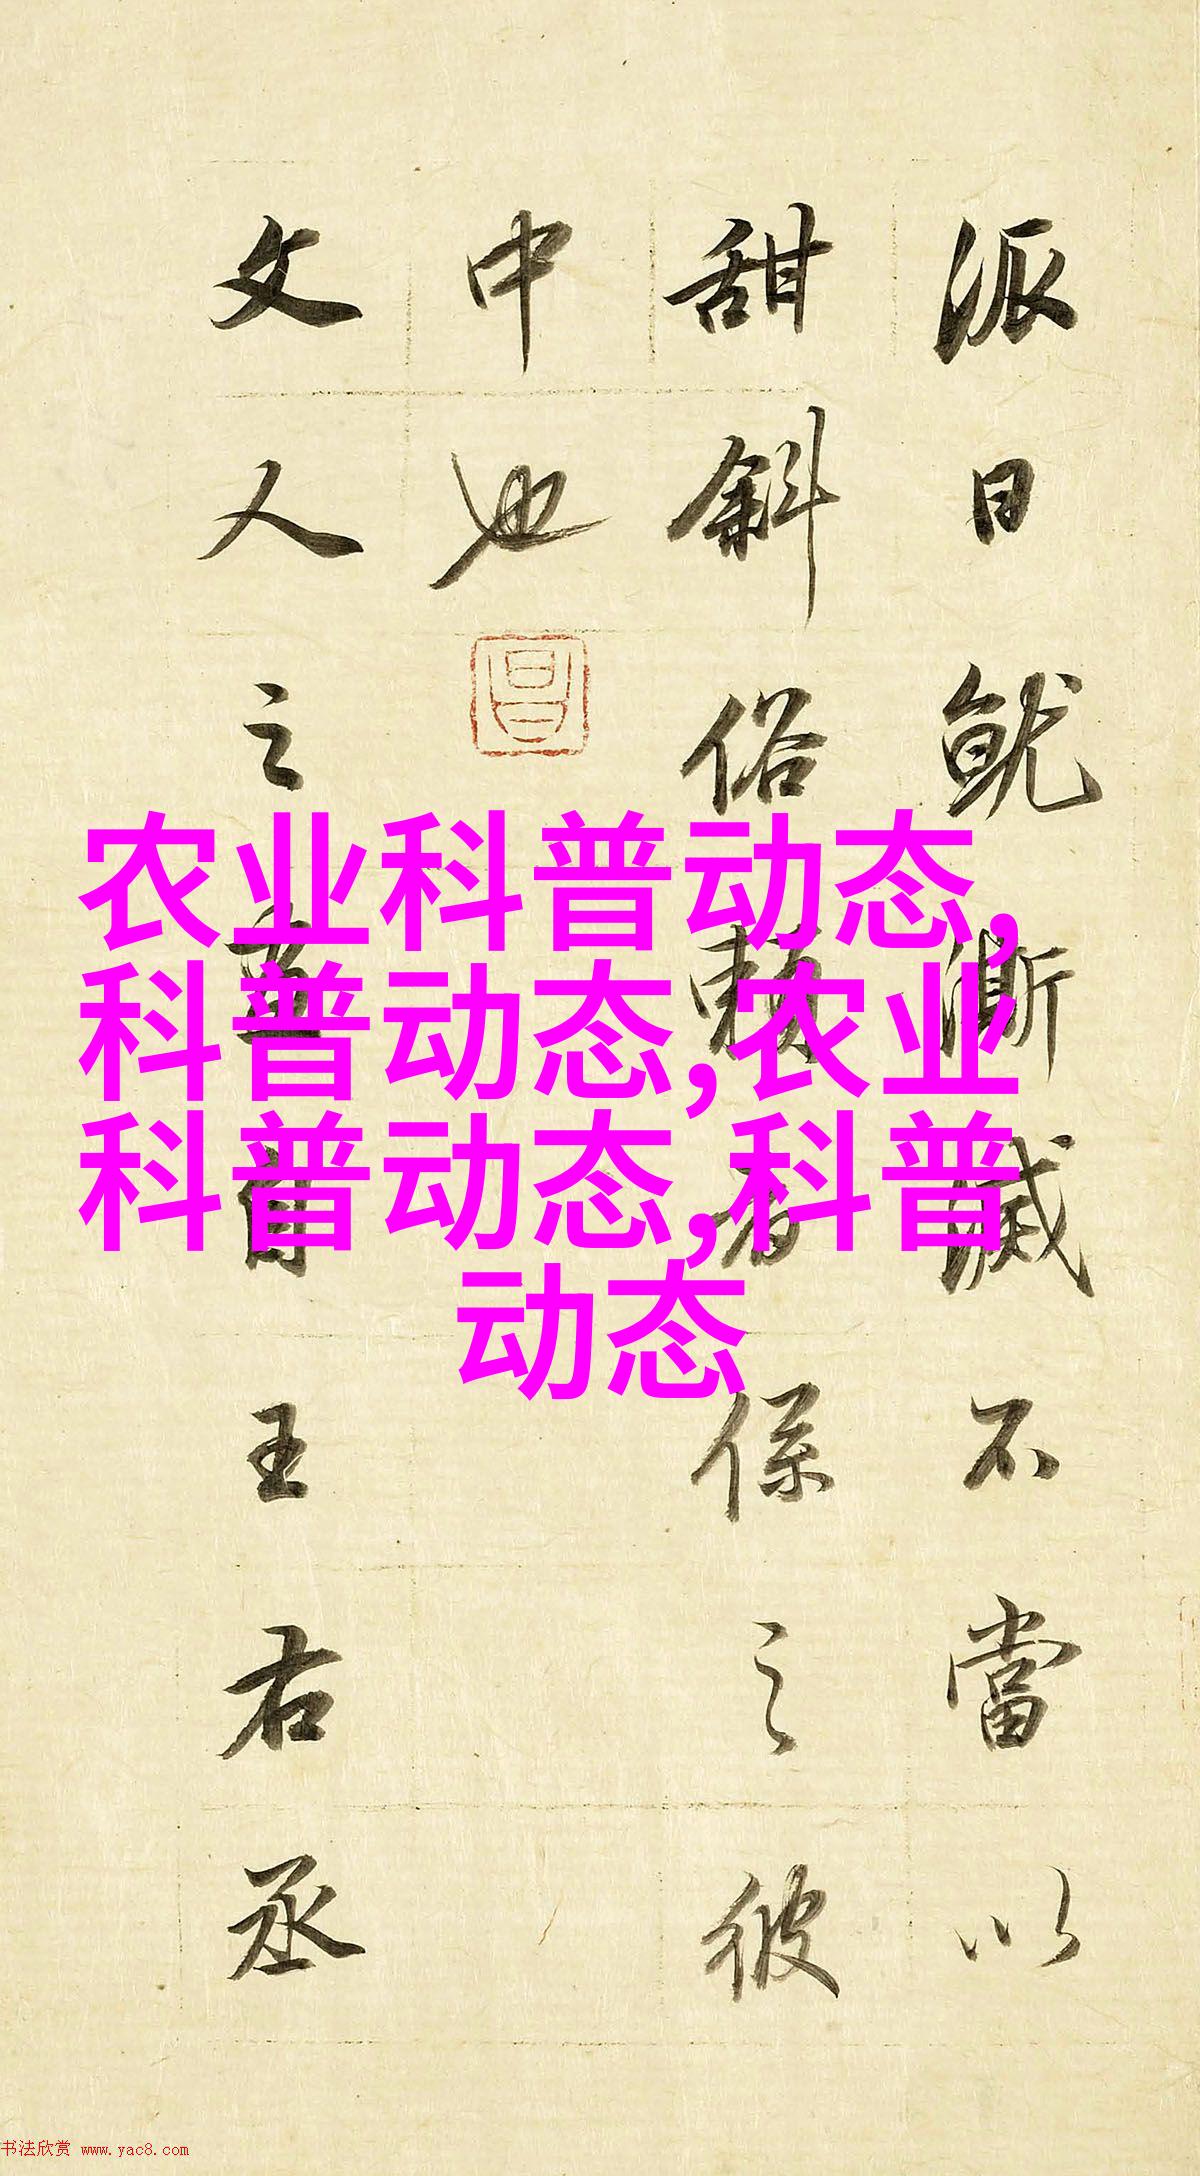 派日就澌滅不當以
甜斜俗賴者係之彼
中也
昌
文人之畫自王右丞
农业科普动态,
科普动态,农业
科普动态,科普
动态
书法欣赏 www.yac8.com